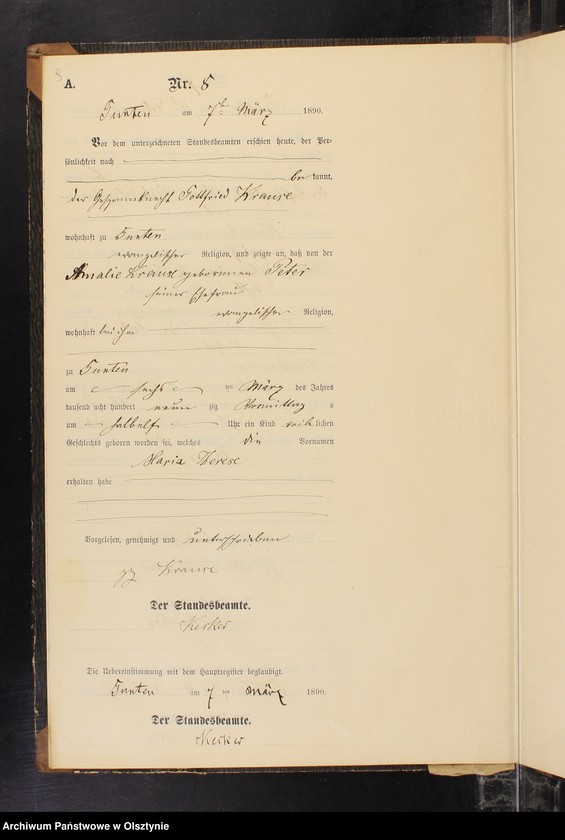 A. Nr. 8
am 7t März 1890.
Vor dem unterzeichneten Standesbeamten erschien heute, der Per-
sönlichkeit nach
be kannt,
der Gespannknecht Gottfried Krause
wohnhaft zu
evangelischer Religion, und zeigte an, daß von der
Amalie Krause geborenen Peter
seiner Ehefrau
evangelischer Religion,
wohnhaft bei ihm
zu
am sechs ten März des Jahres
tausend acht hundert neun zig Vormittag s
um halb elf Uhr ein Kind weib lichen
Geschlechts geboren worden sei, welches die Vornamen
Maria Therese
erhalten habe
Vorgelesen, genehmigt und unterschrieben
gz Krause
Der Standesbeamte.
Die Uebereinstimmung mit dem Hauptregister beglaubigt.
am 7 ten März 1890.
Der Standesbeamte.
Archiwum Państwowe w Olsztynie